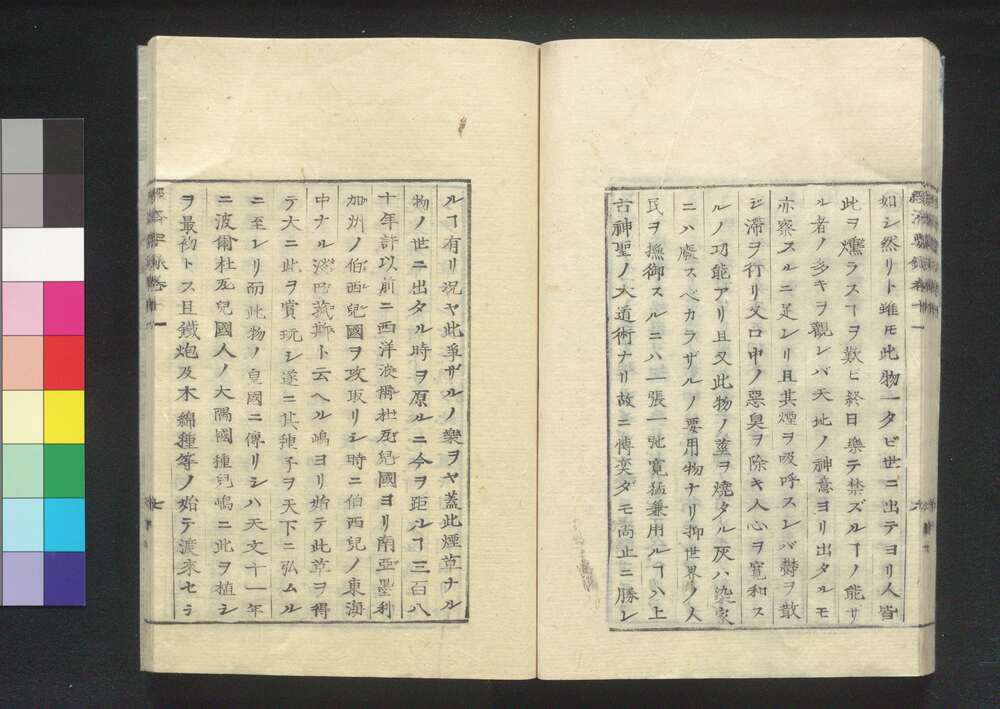 如シ然リト雖モ此物一タビ世ニ出テヨリ人皆
此ヲ燻ラスヿヲ歎ビ終日樂テ禁ズルヿノ能サ
ル者ノ多キヲ觀レバ天地ノ神意ヨリ出タルモ
亦察スルニ足レリ且其煙ヲ吸呼スレバ鬱ヲ散
ジ滯ヲ行リ又口中ノ惡臭ヲ除キ人心ヲ寛和ス
ルノ功能アリ且又此物ノ莖ヲ燒タル灰ハ染家
ニハ廢スベカラザルノ要用物ナリ抑世界ノ人
民ヲ撫御スルニハ一張一弛寛猛兼用ルヿハ上
古神聖ノ大道術ナリ故ニ博奕ダモ尚止ニ勝レ
ルヿ有リ况ヤ此爭ザルノ樂ヲヤ蓋此煙草ナル
物ノ世ニ出タル時ヲ原ルニ今ヲ距ルヿ三百八
十年許以前ニ西洋波爾杜瓦兒國ヨリ南亞墨利
加州ノ伯西兒國ヲ攻取リシ時ニ伯西兒ノ東海
中ナル ト云ヘル嶋ヨリ始テ此草ヲ得
テ大ニ此ヲ賞玩シ遂ニ其種子ヲ天下ニ弘ムル
ニ至レリ而此物ノ皇國ニ傳リシハ天文十一年
ニ波爾杜瓦兒國人ノ大隅國種兒嶋ニ此ヲ植シ
ヲ最初トス且鐵炮及木綿種等ノ始テ渡來セシ